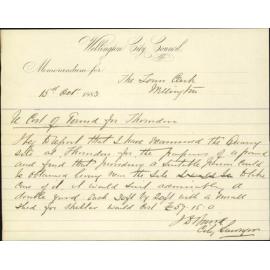 Wellington City Council
Memorandum for
The Town Clerk
15th Oct 1883
Wellington
Re Cost of Pound for Thorndon
I beg to report that I have examined the Quarry
site at Thorndon for the purposes of a Pound
and find that providing a suitable person could
be obtained living near the site to take
care of it, it would suit admirably, a
double yard each by with a small
shed for shelter would cost £57.15.0
City Surveyor